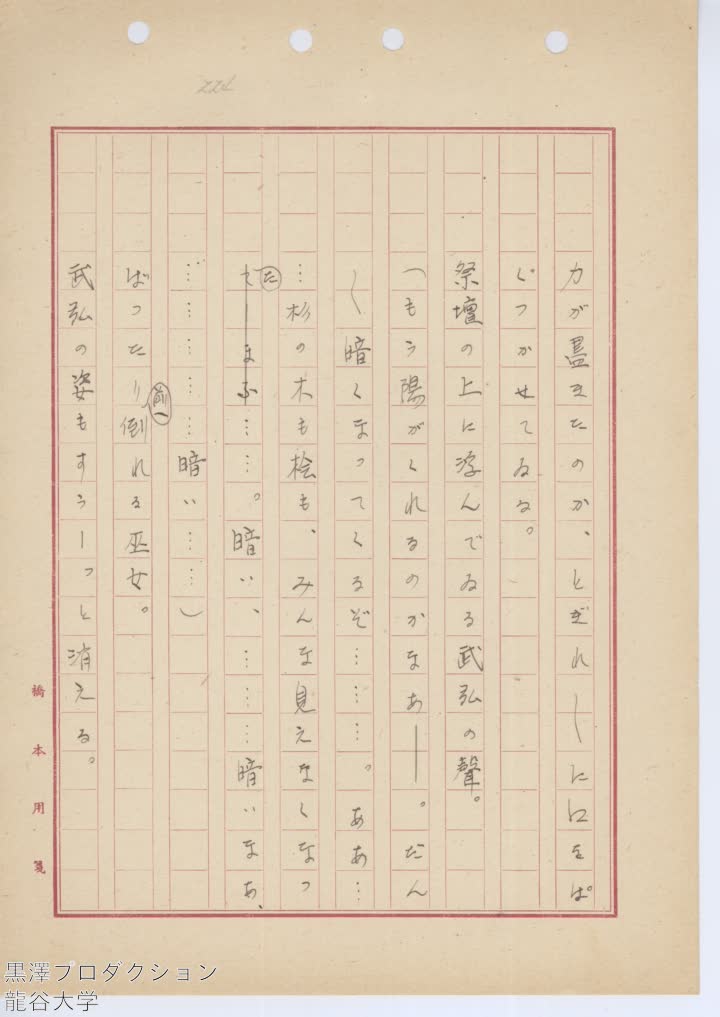 224
力が盡きたのか、とぎれ〳〵に口をぱ
くつかせてゐる。
祭壇の上に浮んでゐる武弘の聲。
（もう陽がくれるのかなあ——。だん
〳〵暗くなってくるぞ………。ああ…
…杉の木も桧も、みんな見えなくなつ
た
てしまふ……。暗い、………暗いなあ、
…………暗い……）
前へ
ばつたり倒れる巫女。
武弘の姿もすうーっと消える。
橋本用箋
黒澤プロダクション
龍谷大学